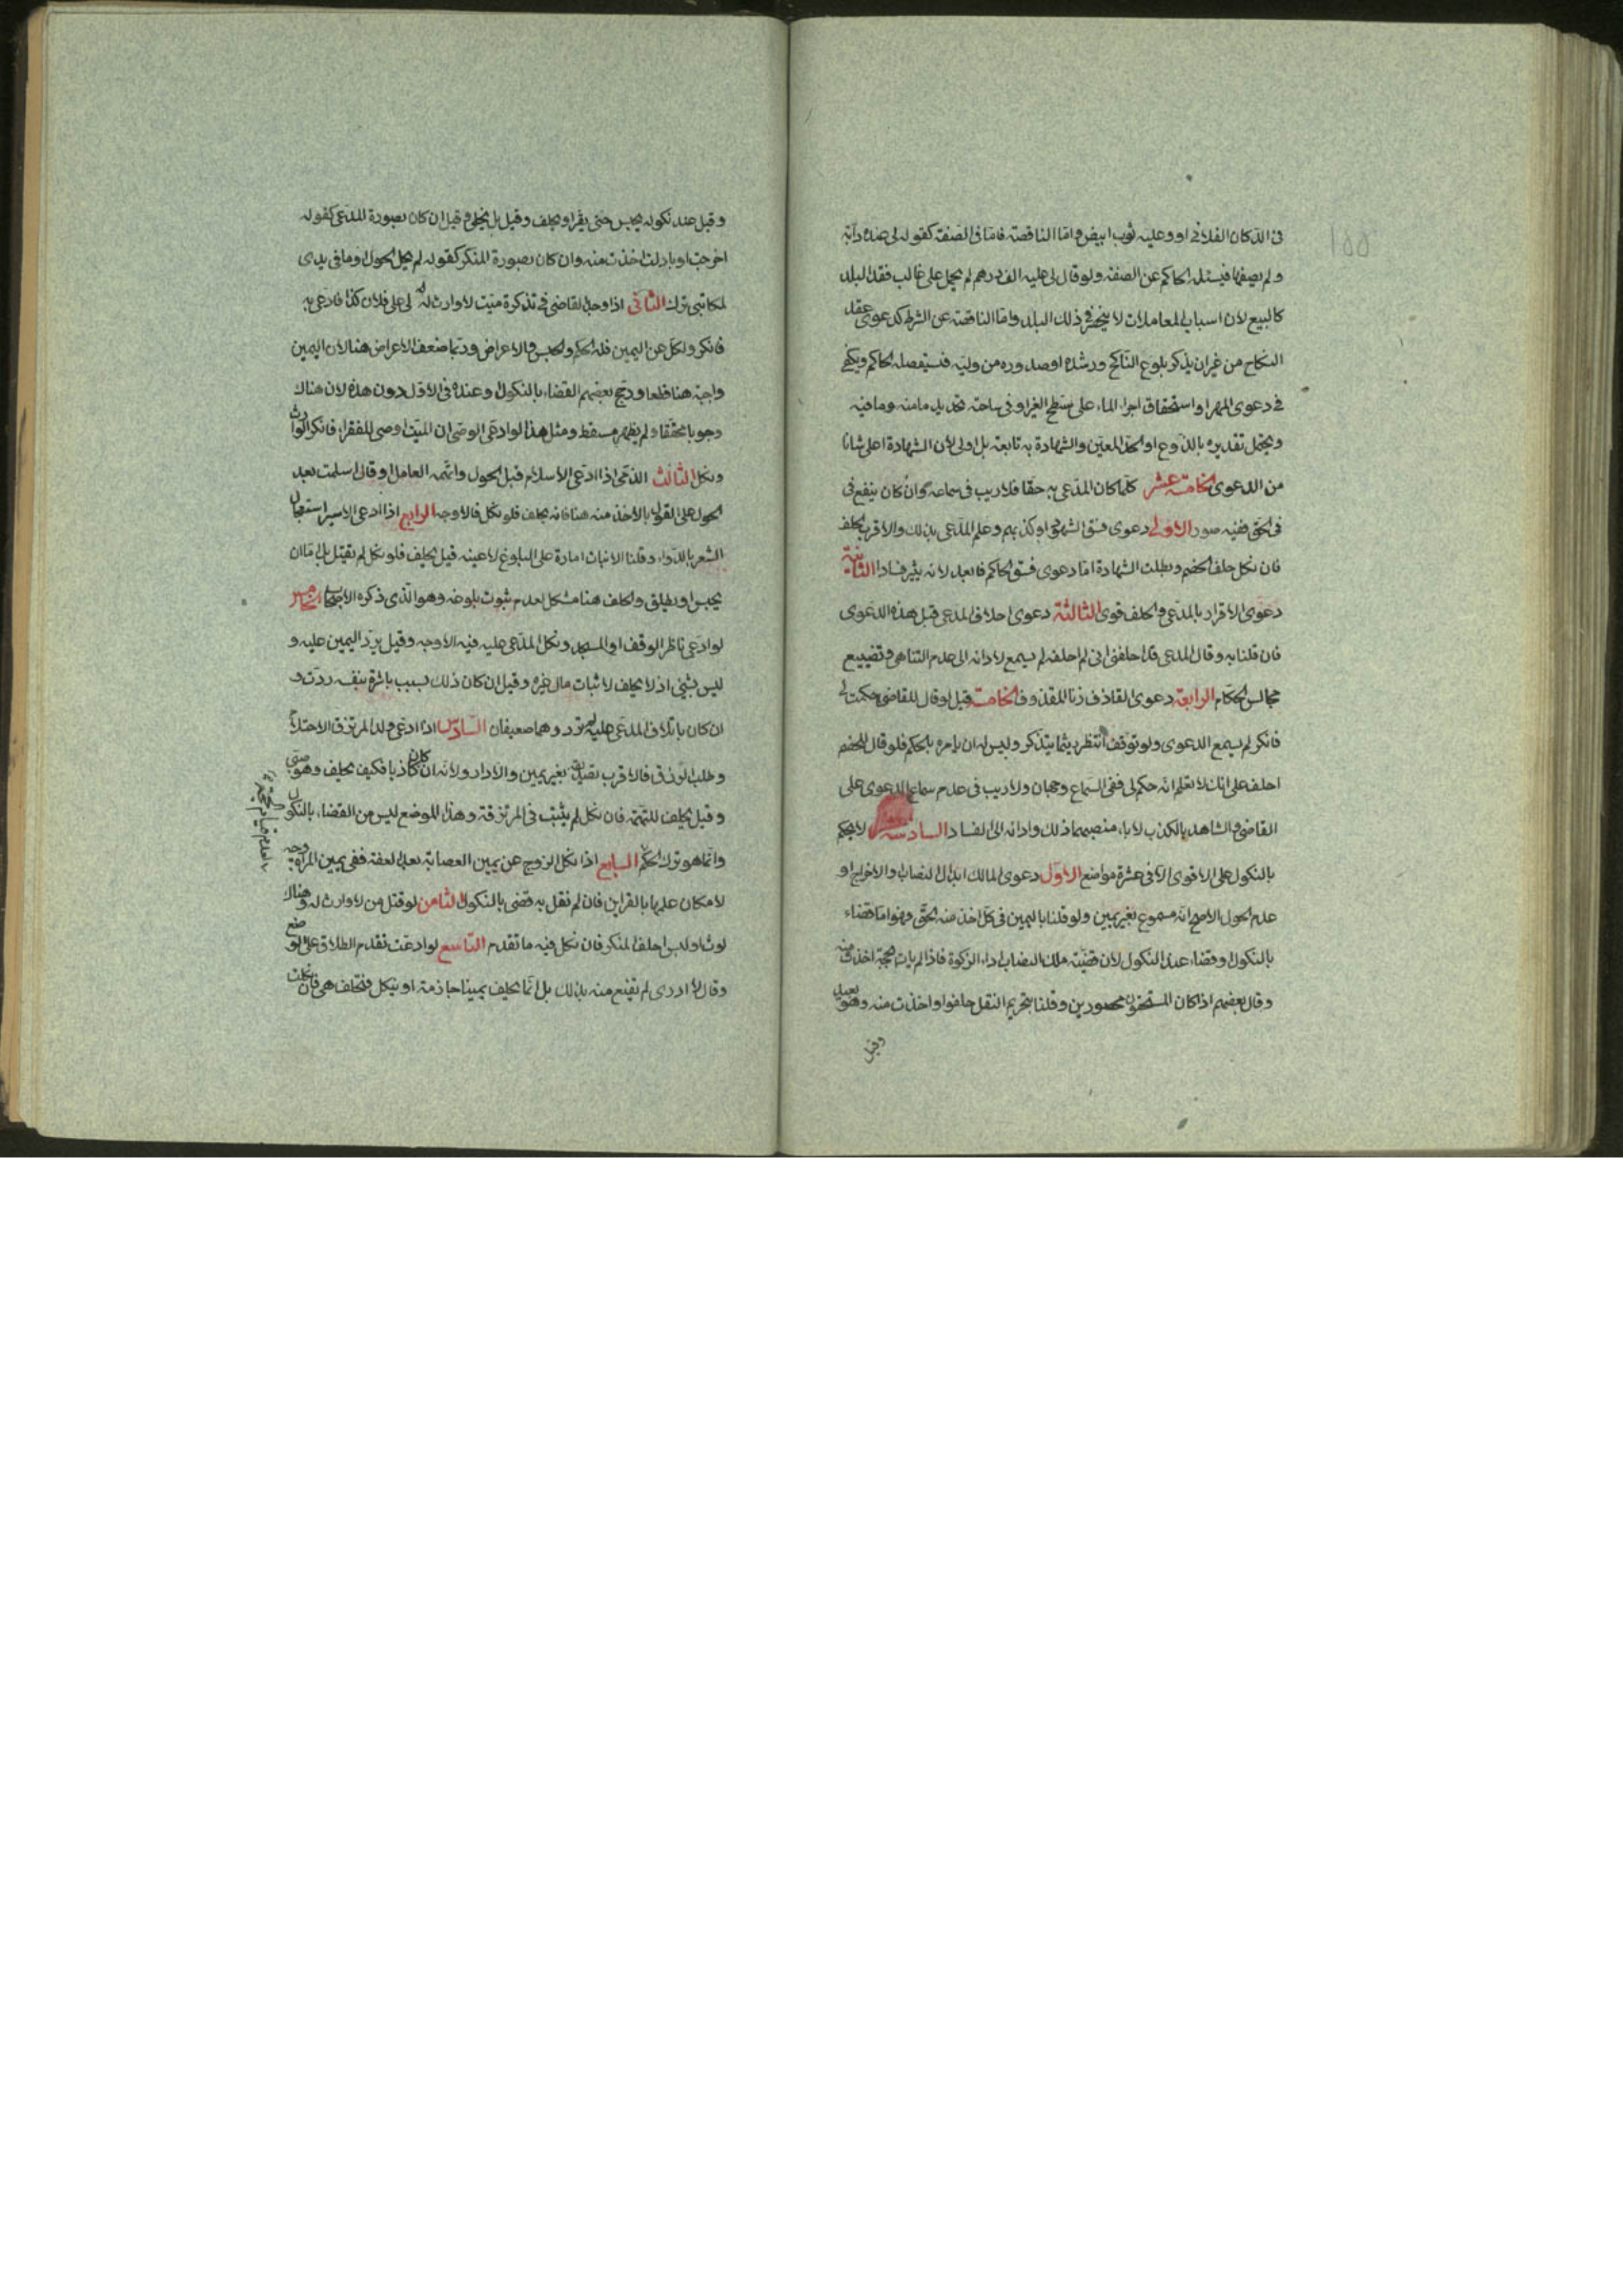 في الدكان الفلاني او وعليه ثوب ابيض واما الناقصة فاما في الصفة كقوله لي عنده دابة
ولم يصفها فيسئله الحاكم عن الصفة ولو قال لي عليه الف درهم لم يحمل على غالب نقد البلد
كالبيع لان اسباب المعاملات لا ينحصر في ذلك البلد واما الناقصة عن الشرط كدعوى عقد
النكاح من غير ان يذكر بلوغ الناكح ورشده او صدوره من وليه فيستفصله الحاكم ويكفي
في دعوى الممر او استحقاق اجراء الماء على سطح الغير او في ساحته تحديد مامنه ومافيه
ويحتمل تقديره بالذروع او الحد المعين والشهادة به تابعة بل اولى لان الشهادة اعلى شانا
من الدعوى الخامسة عشر كلما كان المدعى به حقا فلا ريب في سماعه وان كان ينفع في
في الحق ففيه صور الاولى دعوى فسق الشهود او كذبهم وعلم المدعي بذلك والاقرب يحلف
فان نكل حلف الخصم وبطلت الشهادة اما دعوى فسق الحاكم فابعد لانه يثير فسادا الثانية
دعوى الاقرار بالمدعى والحلف قوي الثالثة دعوى احلاف المدعي قبل هذه الدعوى
فان قلنا به وقال المدعي قد احلفني اني لم احلفه لم يسمع لادائه الى عدم التناهي وتضييع
مجالس الحكام الرابعة دعوى القاذف زنا المقذوف الخامسة قيل لو قال للقاضي حكمت لي
فانكر لم يسمع الدعوى ولو توقف انتظر ريثما يتذكر وليس له ان يامره بالحكم فلو قال للخصم
احلف على انك لا تعلم انه حكم لي ففي السماع وجهان ولا ريب في عدم سماع الدعوى على
القاضي والشاهد بالكذب لاباء منصبهما ذلك وادائه الى الفساد السادسة عشر لا يحكم
بالنكول على الاقوى الا في عشرة مواضع الاول دعوى المالك ابدال النصاب او الاخراج او
عدم الحول الاصح انه مسموع بغير يمين ولو قلنا باليمين فنكل اخذ منه الحق وهو اما قضاء
بالنكول او قضاء عند النكول لان قضية ملك النصاب اداء الزكوة فاذا لم يات بحجة اخذت منه
وقال بعضهم اذا كان المستحقون محصورين وقلنا بتحريم النقل حلفوا واخذت منه وهو بعيد
وقيل
وقيل عند نكوله يحبس حتى يقر او يحلف وقيل بل يخلى وقيل ان كان بصورة المدعي كقوله
اخرجت او بادلت اخذت منه وان كان بصورة المنكر كقوله لم يحل الحول او ما في يدي
لمكاتبي ترك الثاني اذا وجد القاضي في تذكرة ميت لا وارث له لي على فلان كذا فادعى به
فانكر ونكل عن اليمين فله الحكم والحبس والاعراض وربما ضعف الاعراض هنا لان اليمين
واجبة هنا قطعا ورجح بعضهم القضاء بالنكول وعنده في الاول دون هذه لان هناك
وجوبا محققا ولم يظهر مسقط ومثل هذا لو ادعى الوصي ان الميت اوصى للفقراء فانكر الوارث
ونكل الثالث الذمي اذا ادعى الاسلام قبل الحول واتهمه العامل او قال اسلمت بعد
الحول على القول بالاخذ منه هنا فانه يحلف فلو نكل فالاوجه الرابع اذا ادعى الاسير استعجال
الشعر بالدواء وقلنا الانبات امارة على البلوغ لا عينه قيل يحلف فلو نكل لم يقتل بل اما ان
يحبس او يطلق والحلف هنا مشكل لعدم ثبوت بلوغه وهو الذي ذكره الاصحاب الخامس
لو ادعى ناظر الوقف او المسجد ونكل المدعى عليه فيه الاوجه وقيل يرد اليمين عليه و
ليس بشيء اذ لا يحلف لاثبات مال غيره وقيل ان كان ذلك بسبب باشره بنفسه ردت و
ان كان باتلاف المدعى عليه لم ترد وهما ضعيفان السادس اذا ادعى ولد المرتزق الاحتلام
وطلب الرزق فالاقرب تصديقه بغير يمين والا دار ولانه ان كان كاذبا فكيف يحلف وهو صبي
وقيل يحلف للتهمة فان نكل لم يثبت في المرتزقة وهذا الموضع ليس من القضاء بالنكول
وانما هو ترك الحكم السابع اذا نكل الزوج عن يمين العصابة بعد العفة ففي يمين المراة وجه
لامكان علمها بالقراين فان لم نقل به قضي بالنكول الثامن لو قتل من لا وارث له وهناك
لوث اوليس احلف المنكر فان نكل فيه ما تقدم التاسع لو ادعت تقدم الطلاق على الوضع
وقال لا ادري لم يقنع منه بذلك بل اما يحلف يمينا جازمة او ينكل فتحلف هي فان نكلت